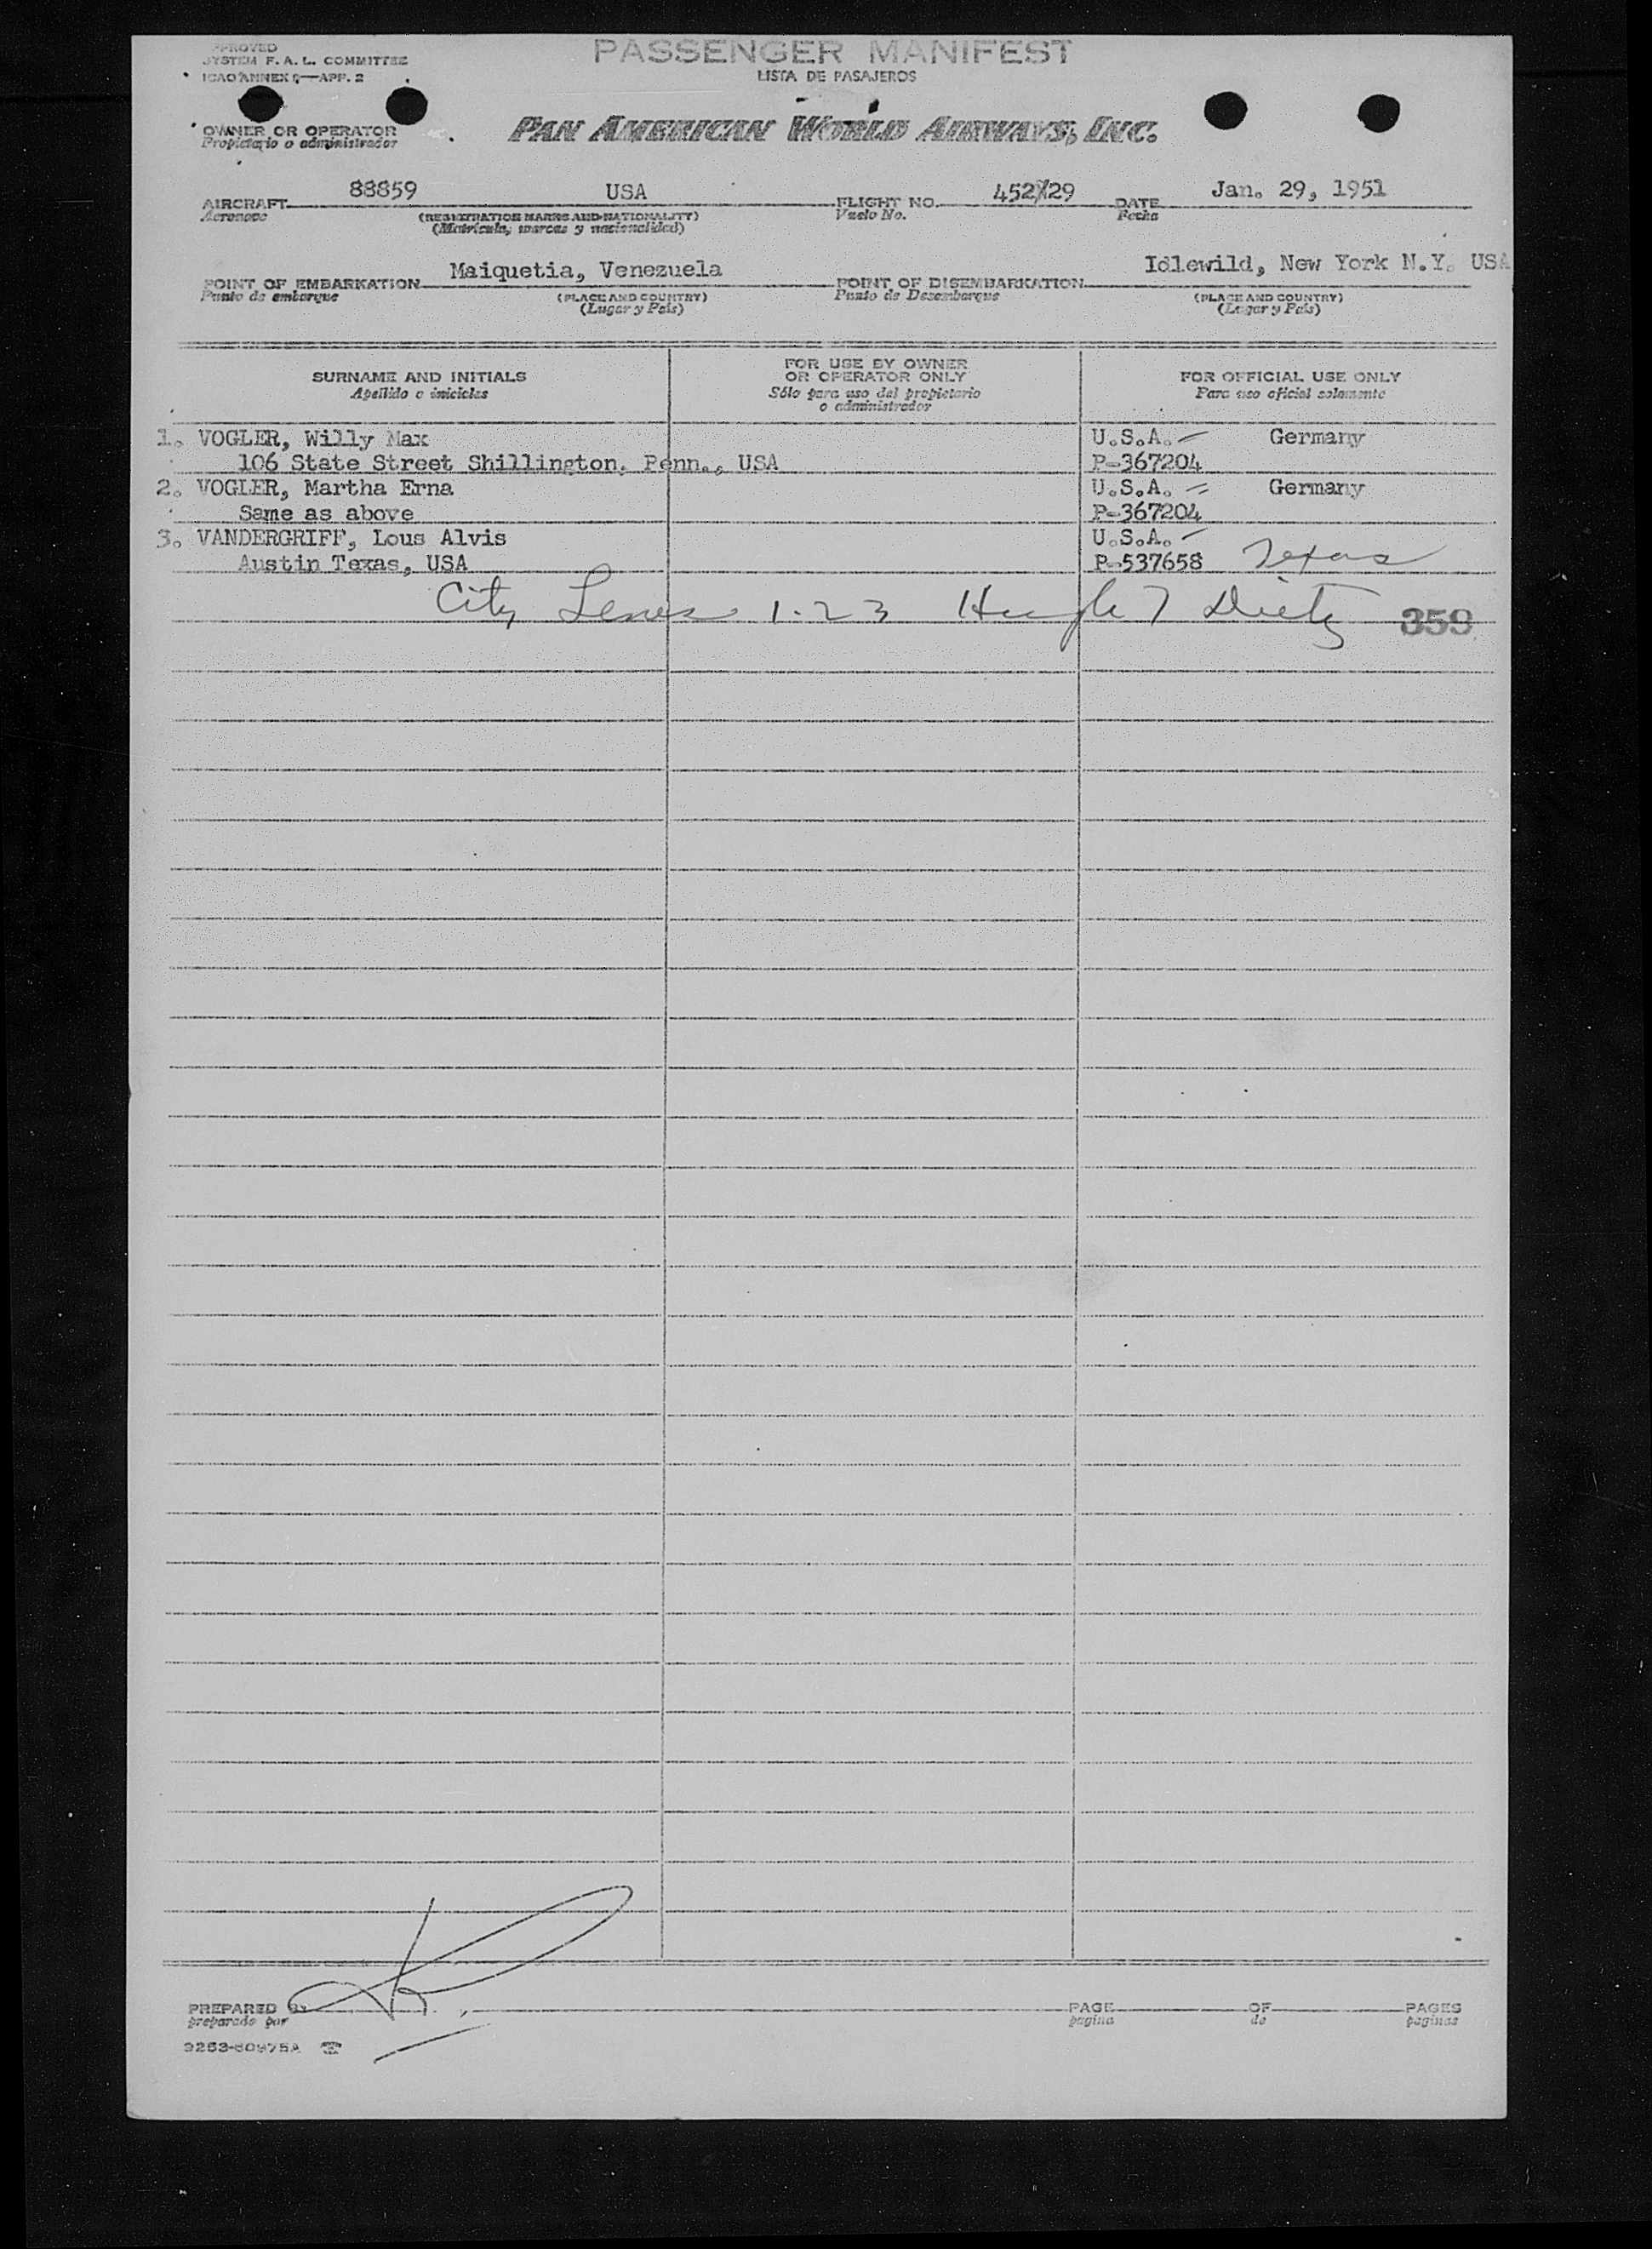 PASSENGER MANIFEST
LISTA DE PASAJEROS
SYSTEM F. A. L. COMMITTEE
ICAO ANNEX 9—APP. 2
OWNER OR OPERATOR
Propietario o administrador
PAN AMERICAN WORLD AIRWAYS, INC.
AIRCRAFT 88859 USA FLIGHT NO. 452X29 DATE Jan. 29, 1951
Aeronave (REGISTRATION MARKS AND NATIONALITY) Vuelo No. Fecha
(Matrícula, marcas y nacionalidad)
POINT OF EMBARKATION Maiquetia, Venezuela POINT OF DISEMBARKATION Idlewild, New York N.Y. USA
Punto de embarque (PLACE AND COUNTRY) Punto de Desembarque (PLACE AND COUNTRY)
(Lugar y País) (Lugar y País)
SURNAME AND INITIALS FOR USE BY OWNER OR OPERATOR ONLY FOR OFFICIAL USE ONLY
Apellido e iniciales Sólo para uso del propietario o administrador Para uso oficial solamente
1. VOGLER, Willy Max U.S.A. Germany
106 State Street Shillington, Penn., USA P-367204
2. VOGLER, Martha Erna U.S.A. Germany
Same as above P-367204
3. VANDERGRIFF, Lous Alvis U.S.A.
Austin Texas, USA P-537658 Texas
City 1-23 Hugh Dietz 359
PREPARED BY PAGE OF PAGES
preparado por pagina de paginas